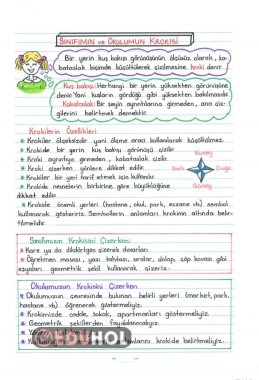 SINIFIMIN ve OKULUMUN KROKİSİ
Bir yerin kuş bakışı görünüşünün ölçüsüz olarak, ka-
bataslak biçimde küçültülerek çizilmesine kroki denir.
Kuş bakışı: Herhangi bir yerin yüksekten görünüşüne
denir. Yani kuşların gördüğü gibi yüksekten bakılmasıdır.
Kabataslak: Bir şeyin ayrıntılarına girmeden, ana çiz-
gilerini belirterek demektir.
Krokilerin Özellikleri
Krokiler ölçeksizdir yani ölçme aracı kullanılarak küçültülmez.
Krokide bir yerin kuş bakışı görünüşü çizilir.
Kroki ayrıntıya girmeden, kabataslak çizilir.
Kroki çizerken yönlere dikkat edilir.
Krokiler bir yeri tarif etmek için kullanılır.
Krokide nesnelerin birbirine göre büyüklüğüne
dikkat edilir.
Kuzey
Batı
Doğu
Güney
Krokide önemli yerleri (hastane, okul, park, eczane vb) sembol
kullanarak gösteririz. Sembollerin anlamları krokinin altında belir-
tilmelidir.
Sınıfımızın Krokisini Çizerken:
Kare ya da dikdörtgen çizerek duvarları
Öğretmen masası, yazı tahtası, sıralar, dolap, çöp kovası gibi
eşyaları geometrik şekil kullanarak çizeriz.
Okulumuzun Krokisini Çizerken
Okulumuzun çevresinde bulunan belirli yerleri (market, park,
hastane vb) öğrenerek göstermeliyiz.
Krokimizde cadde, sokak, apartmanları göstermeliyiz.
Geometrik şekillerden faydalanmalıyız.
krokide belirtmeliyiz.
EDUHOL